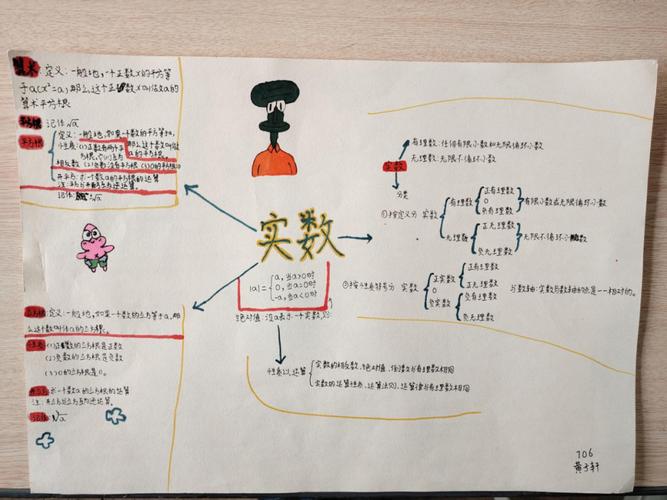 算术:定义:一般地,一个正数x的平方等
于a(x²=a),那么这个正数x叫做a的
算术平方根
平方根 记作√a
平方根
定义:一般地,如果一个数的平方等于a,
那么这个数叫做a的平方根。
性质:(1)正数有两个平方根,它们互为
相反数(2)负数没有平方根(3)0的平方根是0
开平方:求一个数a的平方根的运算
注:平方与开平方互为逆运算
记作:±√a
立方根:定义:一般地,如果一个数的立方等于a,那
么这个数叫做a的立方根。
性质:(1)正数的立方根是正数
(2)负数的立方根是负数
(3)0的立方根是0。
开立方:求一个数a的立方根的运算
注:开立方与立方互为逆运算。
记作:³√a
实数
|a|=
a,当a>0时
0,当a=0时
-a,当a<0时
绝对值:设a表示一个实数,则
性质以运算
实数的相反数、绝对值、倒数与有理数相同
实数的运算性质、运算法则、运算律与有理数相同
实数
有理数:任何有限小数和无限循环小数
无理数:无限不循环小数
分类
①按定义分 实数
有理数
正有理数
0
负有理数
有限小数或无限循环小数
无理数
正无理数
负无理数
无限不循环小数
②按性质符号分 实数
正实数
正有理数
正无理数
0
负实数
负有理数
负无理数
与数轴:实数与数轴的点是一一相对的。
706
黄子轩